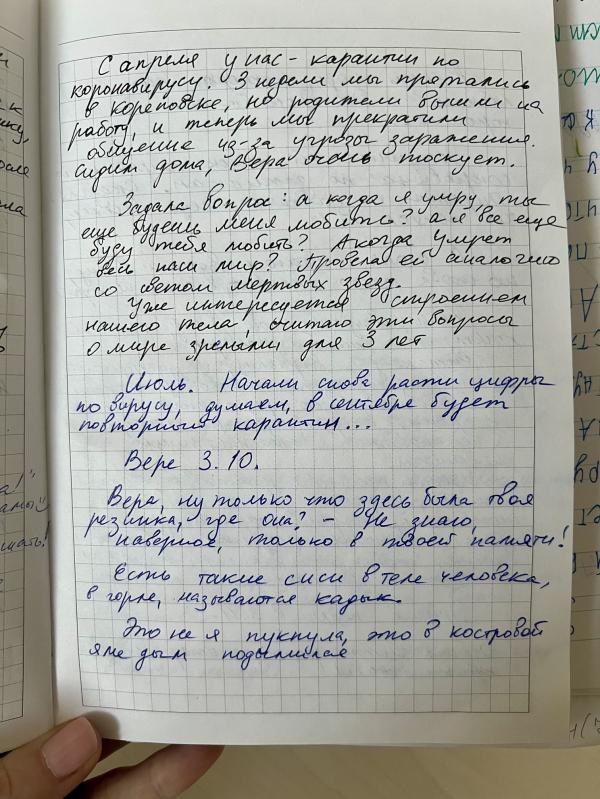 С апреля у нас - карантин по
коронавирусу. 3 недели мы прятались
в Кореновске, но родители вышли на
работу, и теперь мы прекратили
общение из-за угрозы заражения.
Сидим дома, Вера очень тоскует.
Задала вопрос: а когда я умру, ты
еще будешь меня любить? а я все еще
буду тебя любить? А когда умрет
весь наш мир? Провела ей аналогию
со светом мертвых звезд.
Уже интересуется строением
нашего тела, считаю эти вопросы
о мире зрелыми для 3 лет
Июль. Начали снова расти цифры
по вирусу, думаем, в сентябре будет
повторный карантин...
Вере 3.10.
Вера, ну только что здесь была твоя
резинка, где она? - Не знаю,
наверное, только в твоей памяти!
Есть такие сиси в теле человека,
в горле, называются кадык.
Это не я пукнула, это в костровой
яме дым подымился